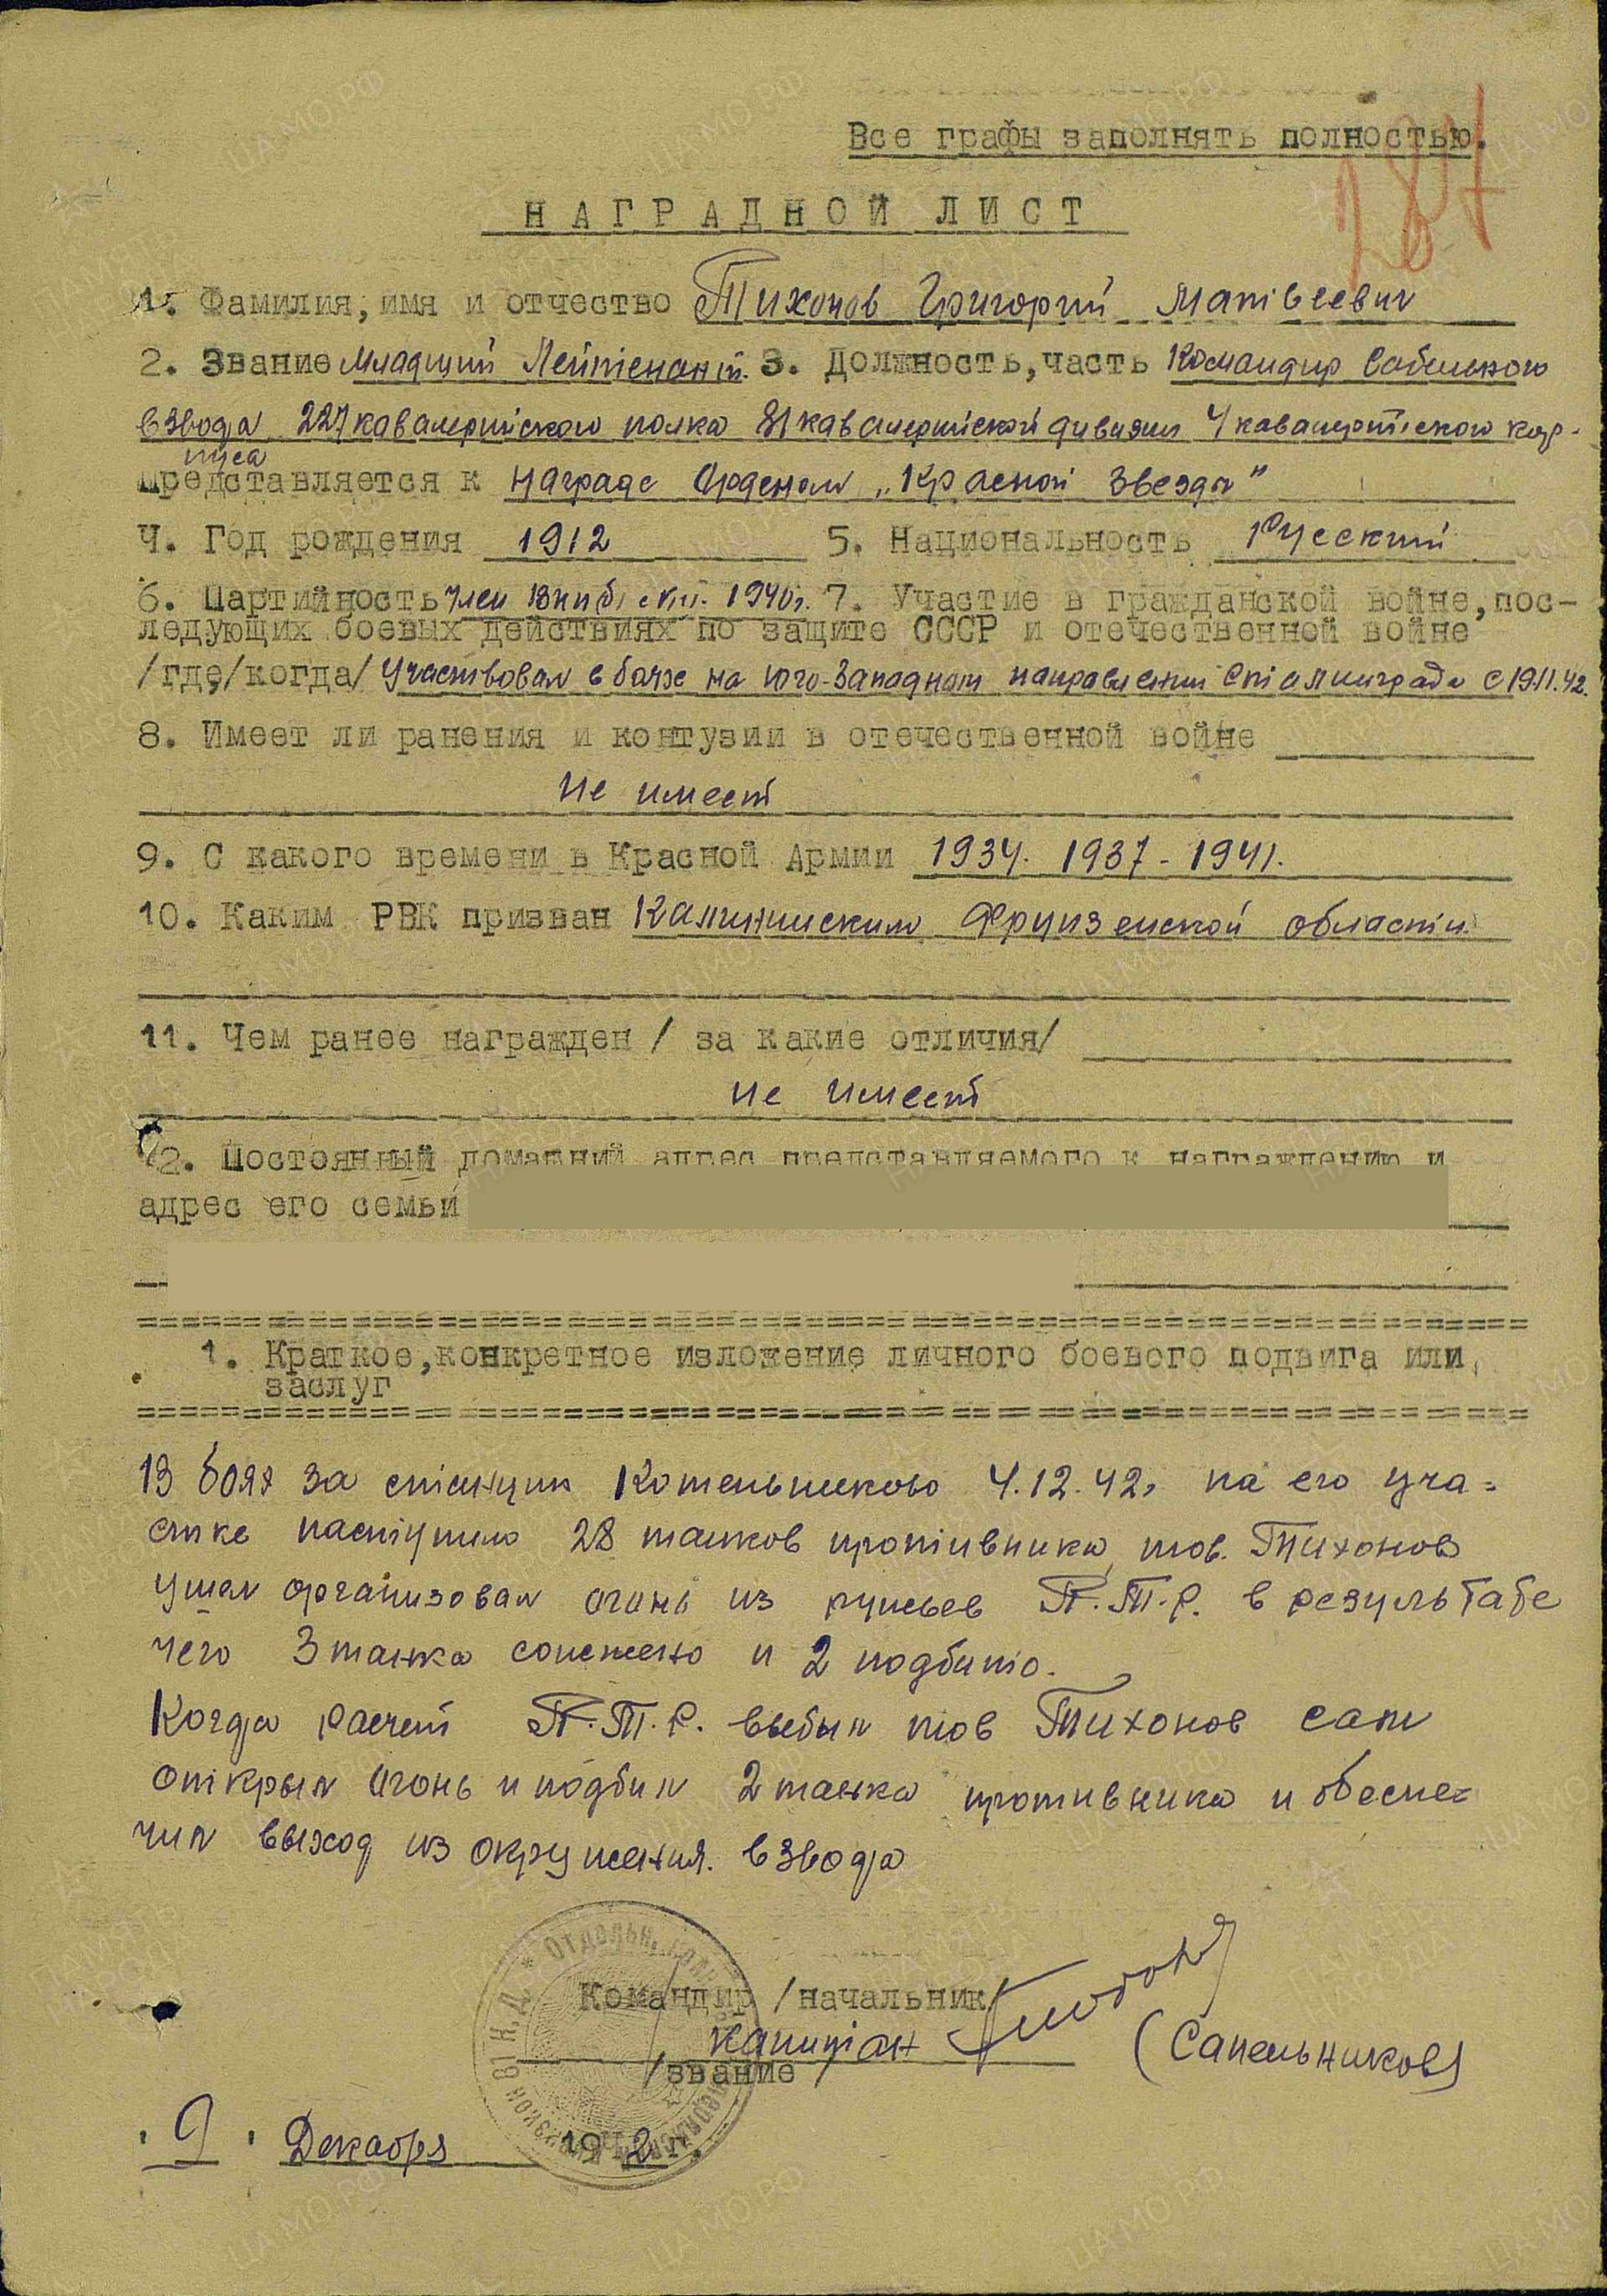 Все графы заполнять полностью.
287
НАГРАДНОЙ ЛИСТ
1. Фамилия, имя и отчество Тихонов Григорий Матвеевич
2. Звание Младший Лейтенант. 3. Должность, часть Командир Сабельного
взвода 227 кавалерийского полка 81 кавалерийской дивизии 4 кавалерийского кор-
пуса
Представляется к награде Орденом „Красной Звезды"
4. Год рождения 1912 5. Национальность Русский
6. Партийность Член ВКП(б) с VIII. 1940г. 7. Участие в гражданской войне, пос-
ледующих боевых действиях по защите СССР и отечественной войне
/где/когда/ Участвовал в боях на Юго-Западном направлении Сталинграда с 19.11.42.
8. Имеет ли ранения и контузии в отечественной войне
Не имеет
9. С какого времени в Красной Армии 1934. 1937 - 1941.
10. Каким РВК призван Калининским Фрунзенской области
11. Чем ранее награжден / за какие отличия/
не имеет
12. Постоянный домашний адрес представляемого к награждению и
адрес его семьи
1. Краткое, конкретное изложение личного боевого подвига или
заслуг
В боях за станцию Котельниково 4.12.42г на его уча=
стке наступило 28 танков противника тов. Тихонов
умел организовал огонь из ружьев П.Т.Р. в результате
чего 3 танка сожжено и 2 подбито.
Когда расчет П.Т.Р. выбыл тов Тихонов сам
открыл огонь и подбил 2 танка противника и обеспе=
чил выход из окружения. взвода
Командир /начальник/
капитан (Сапельников)
/звание/
"9" Декабря 1942 г.